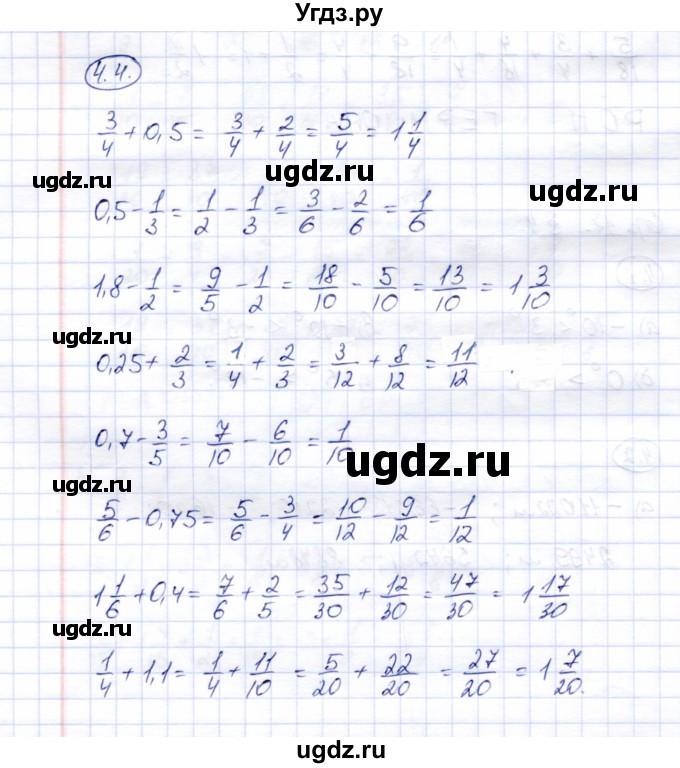 Угдз.ру
4.4.
3/4 + 0,5 = 3/4 + 2/4 = 5/4 = 1 1/4
ugdz.ru ugdz.ru ugdz.ru
0,5 - 1/3 = 1/2 - 1/3 = 3/6 - 2/6 = 1/6
1,8 - 1/2 = 9/5 - 1/2 = 18/10 - 5/10 = 13/10 = 1 3/10
ugdz.ru
0,25 + 2/3 = 1/4 + 2/3 = 3/12 + 8/12 = 11/12
0,7 - 3/5 = 7/10 - 6/10 = 1/10
ugdz.ru
ugdz.ru
5/6 - 0,75 = 5/6 - 3/4 = 10/12 - 9/12 = 1/12
1 1/6 + 0,4 = 7/6 + 2/5 = 35/30 + 12/30 = 47/30 = 1 17/30
ugdz.ru
1/4 + 1,1 = 1/4 + 11/10 = 5/20 + 22/20 = 27/20 = 1 7/20.
ugdz.ru